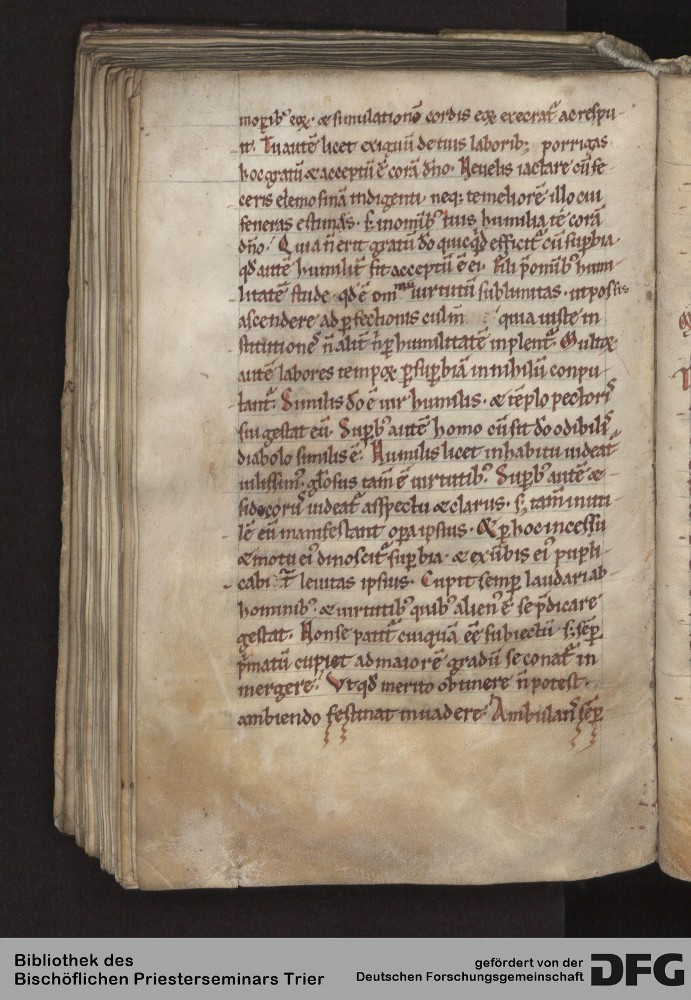 moribꝰ eoꝝ· & simulationē cordis eoꝝ execrat᷑ ac respu-
it· Tu autē licet exiguū de tuis laborib; porrigas
hoc gratū & acceptū ē corā dn̄o· Ne uelis iactare cū fe-
ceris elemosinā indigenti· neq; te meliorē illo cui
feneras estimās· s; in om̄ibꝰ tuis humilia te corā
dn̄o· Quia n̄ erit gratū dō quicq̄d efficit᷑ cū suꝑbia·
qd̄ autē humilit̄ fit acceptū ē ei· Fili p̄ om̄ibꝰ humi-
litatē stude· qd̄ ē om̄ virtutū sublimitas· ut possis
ascendere ad ꝑfectionis culm̄ quia iuste in
stitutionē n̄ aliť n̄ ꝑ humilitatē inplent᷑· Multoꝝ
autē labores tempoꝝ ꝑ suꝑbiā in nihilū conpu-
tant᷑· Similis dō ē uir humilis· & tēplo pectoris
sui gestat eū· Suꝑbꝰ autē homo cū sit dō odibilis
diabolo similis ē· Humilis licet in habitu uideat᷑
uilissimꝰ· gl̄osus tam̄ ē uirtutibꝰ· Suꝑbꝰ autē &
si decorꝰ uideat᷑ asspectu & clarus· s; tam̄ inuti-
lē eū manifestant oꝑa ipsius· & ꝑ hoc incessu
& motu eiꝰ dinoscit᷑ suꝑbia· & ex ūbis eiꝰ pupli-
cabit᷑ leuitas ipsius· Cupit semꝑ laudari ab
hominibꝰ· & uirtutibꝰ quibꝰ alienꝰ ē se p̄dicare
gestat· Non se patit᷑ cuiquā eē subiectū s; sēꝑ
p̄matū cupiet ad maiorē gradū se conat᷑ in
mergere· Vt qd̄ merito obtinere n̄ potest·
ambiendo festinat inuadere· Ambulans sēꝑ
Bibliothek des
Bischöflichen Priesterseminars Trier
gefördert von der
Deutschen Forschungsgemeinschaft
DFG